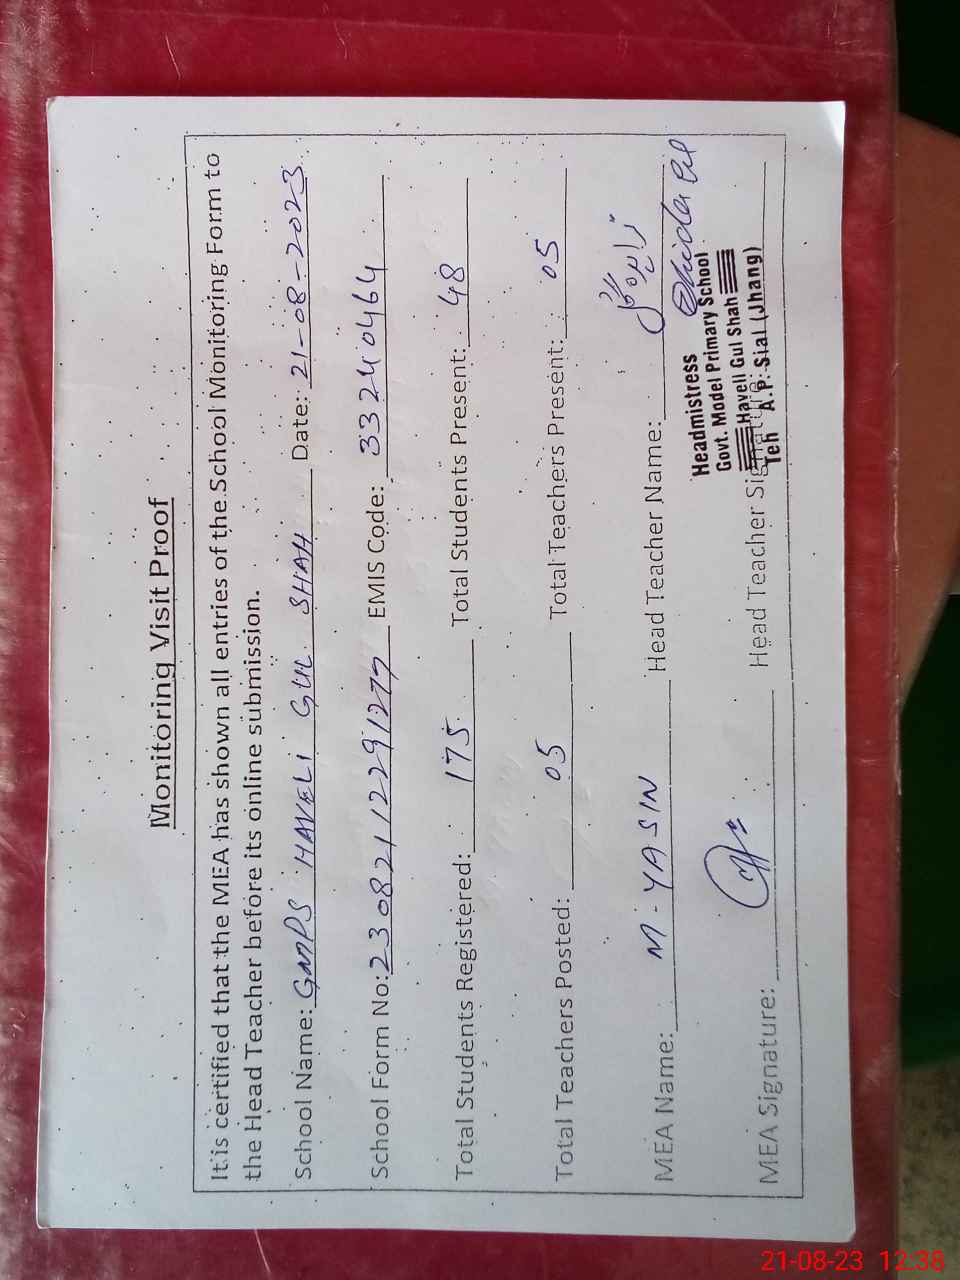 Monitoring Visit Proof
It is certified that the MEA has shown all entries of the School Monitoring Form to
the Head Teacher before its online submission.
School Name: GMPS HAVELI GUL SHAH Date: 21-08-2023
School Form No: 23082112291277 EMIS Code: 33240464
Total Students Registered: 175 Total Students Present: 48
Total Teachers Posted: 05 Total Teachers Present: 05
MEA Name: M-YASIN Head Teacher Name:
Headmistress
Govt. Model Primary School
Haveli Gul Shah
Teh A.P. Sial (Jhang)
MEA Signature: Head Teacher Signature:
21-08-23 12:38